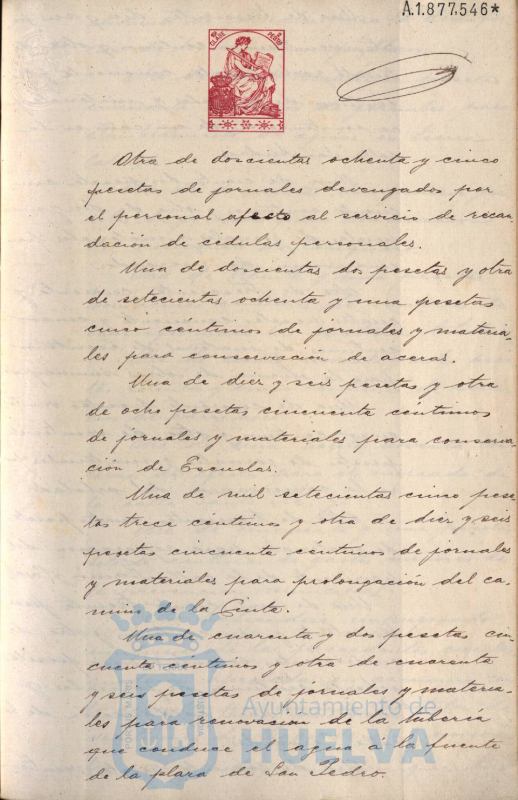 A.1.877.546*
10ª CLASE PESETA
Otra de doscientas ochenta y cinco
pesetas de jornales devengados por
el personal afecto al servicio de recau-
dación de cédulas personales.
Una de doscientas dos pesetas y otra
de setecientas ochenta y una pesetas
cinco céntimos de jornales y materia-
les para conservación de aceras.
Una de diez y seis pesetas y otra
de ocho pesetas cincuenta céntimos
de jornales y materiales para conserva-
ción de Escuelas.
Una de mil setecientas cinco pese-
tas trece céntimos y otra de diez y seis
pesetas cincuenta céntimos de jornales
y materiales para prolongación del ca-
mino de la Cinta.
Una de cuarenta y dos pesetas cin-
cuenta céntimos y otra de cuarenta
y seis pesetas de jornales y materia-
les para renovación de la tubería
que conduce el agua á la fuente
de la plaza de San Pedro.
Ayuntamiento de
HUELVA